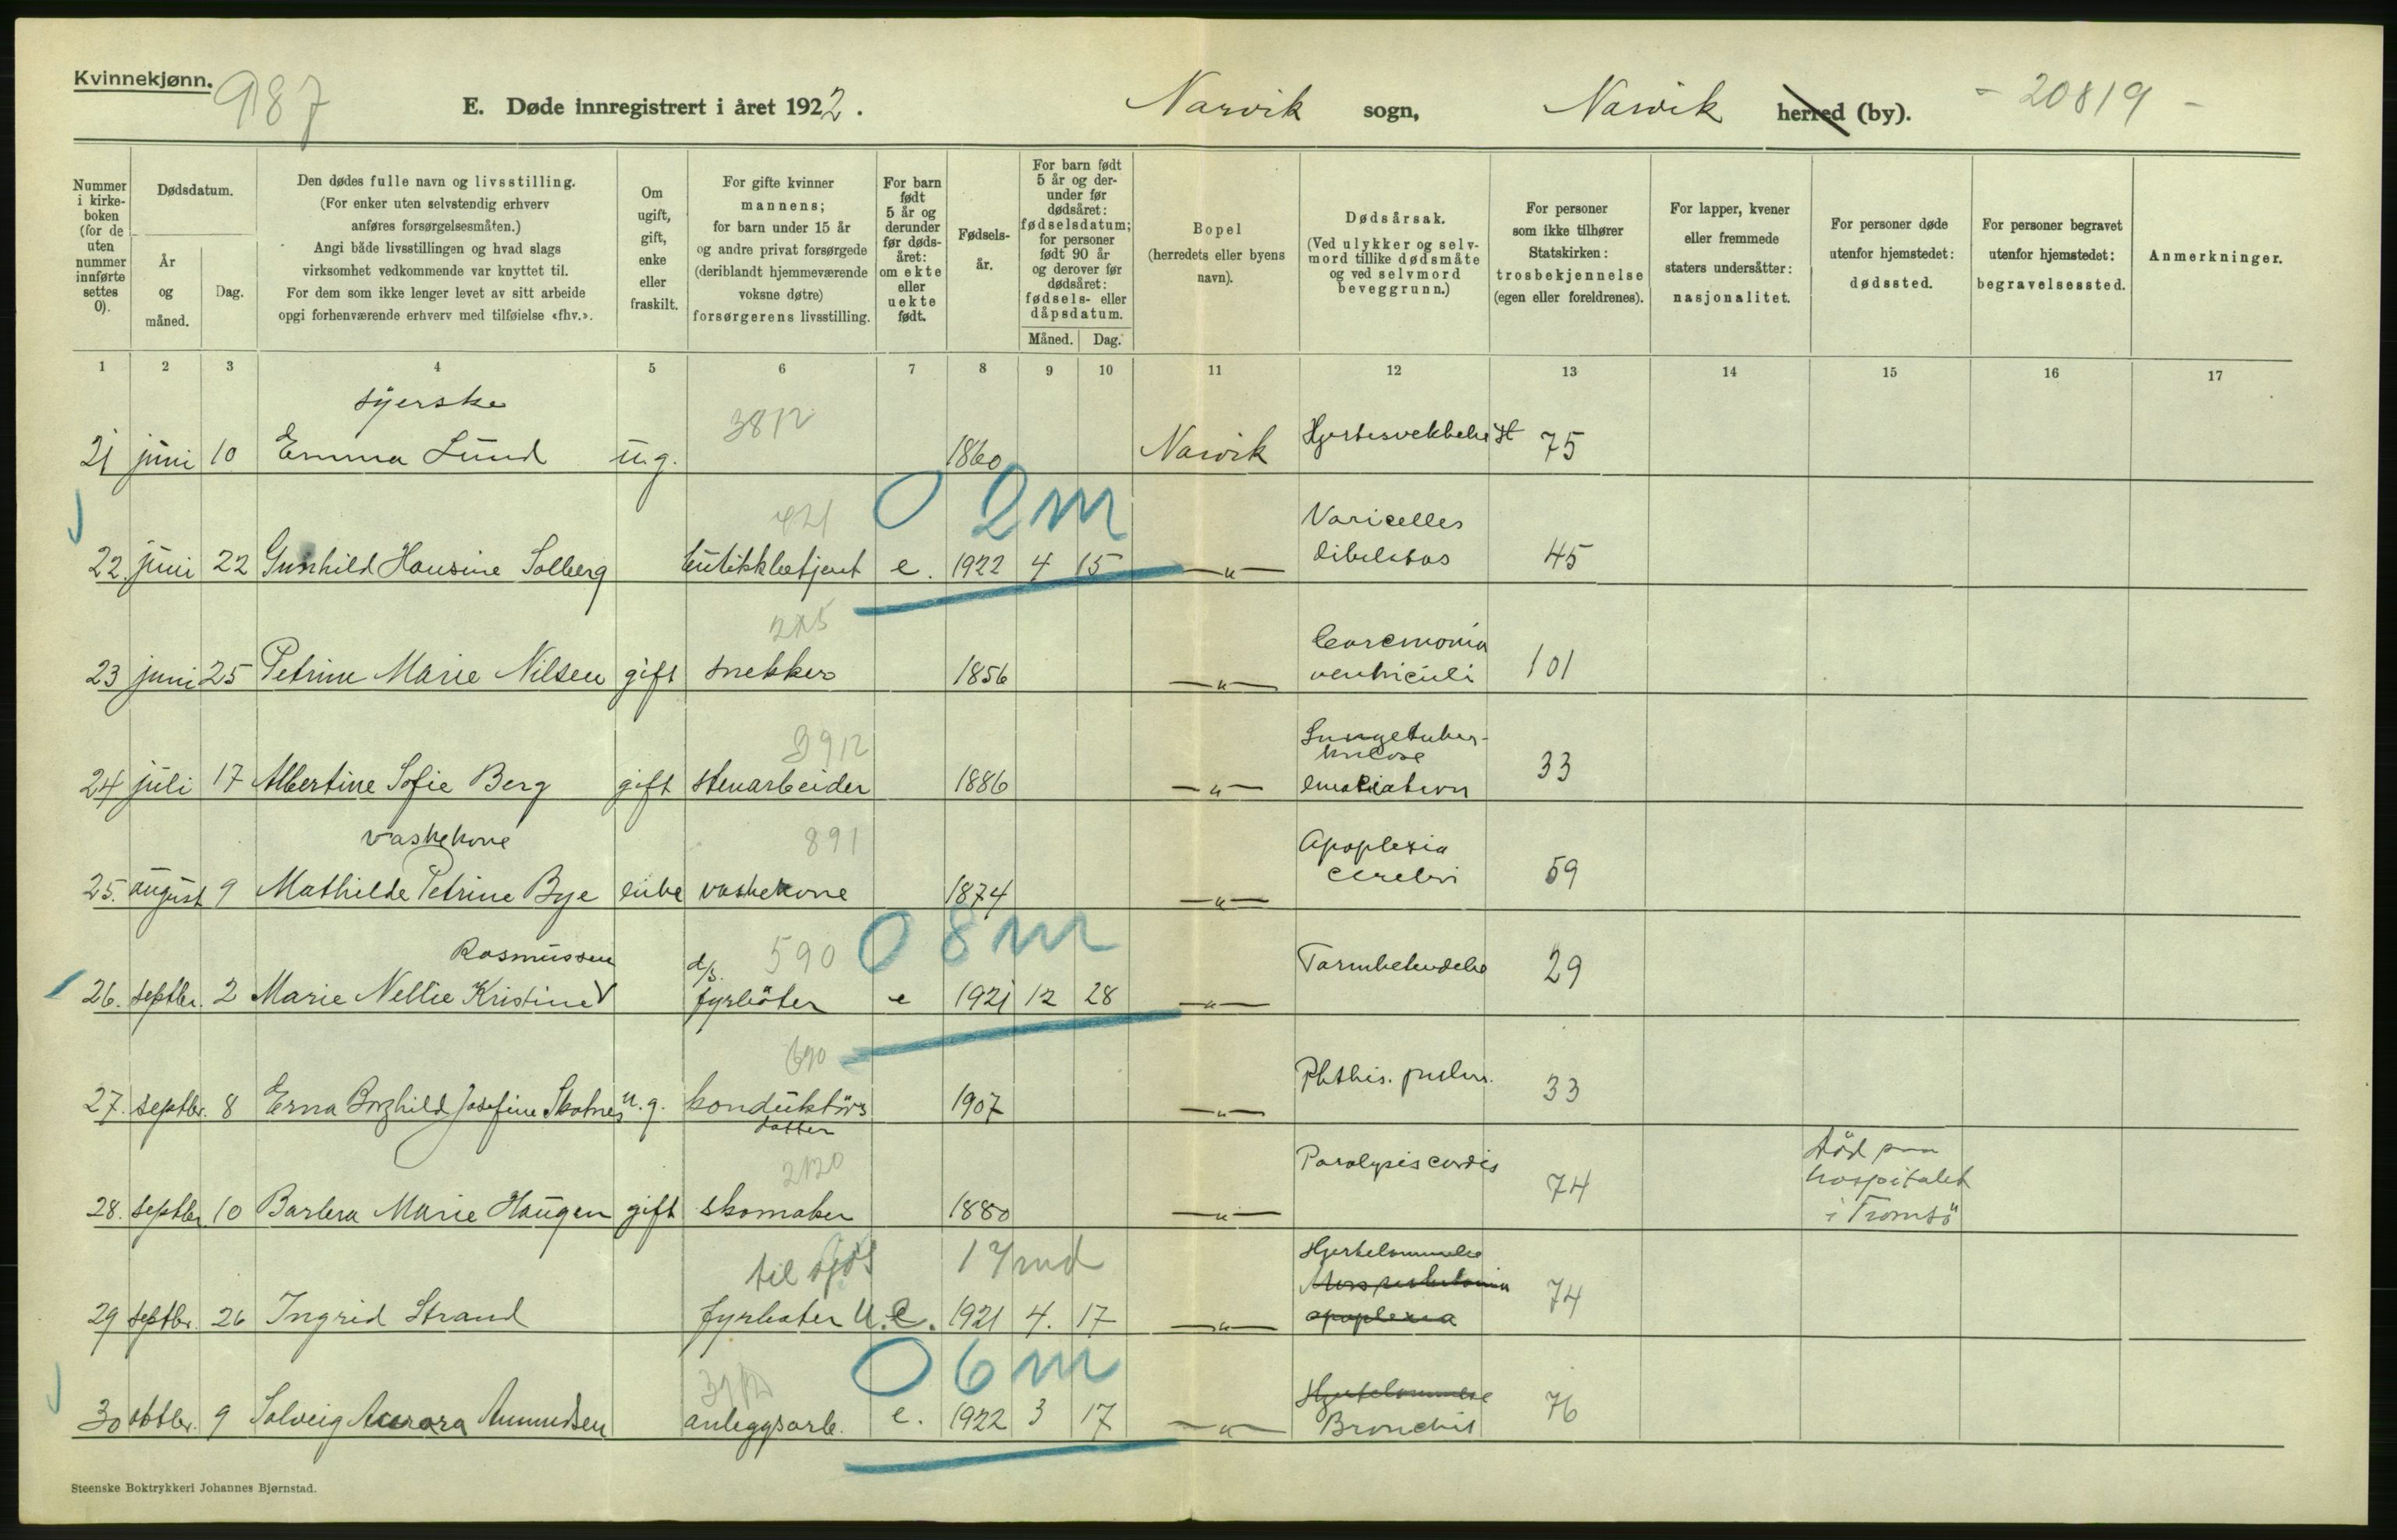 Kvinnekjønn.
987
E. Døde innregistrert i året 1922. Narvik sogn, Narvik herred (by). - 20819 -
Nummer i kirkeboken (for de uten nummer innførte settes 0).
Dødsdatum.
År og måned.
Dag.
Den dødes fulle navn og livsstilling.
(For enker uten selvstendig erhverv anføres forsørgelsesmåten.)
Angi både livsstillingen og hvad slags virksomhet vedkommende var knyttet til.
For dem som ikke lenger levet av sitt arbeide opgi forhenværende erhverv med tilføielse «fhv.».
Om ugift, gift, enke eller fraskilt.
For gifte kvinner mannens; for barn under 15 år og andre privat forsørgede (deriblandt hjemmeværende voksne døtre) forsørgerens livsstilling.
For barn født 5 år og derunder før dødsåret: om ekte eller uekte født.
Fødselsår.
For barn født 5 år og derunder før dødsåret: fødselsdatum; for personer født 90 år og derover før dødsåret: fødsels- eller dåpsdatum.
Måned. Dag.
Bopel (herredets eller byens navn).
Dødsårsak. (Ved ulykker og selvmord tillike dødsmåte og ved selvmord beveggrunn.)
For personer som ikke tilhører Statskirken: trosbekjennelse (egen eller foreldrenes).
For lapper, kvener eller fremmede staters undersåtter: nasjonalitet.
For personer døde utenfor hjemstedet: dødssted.
For personer begravet utenfor hjemstedet: begravelsessted.
Anmerkninger.
1 2 3 4 5 6 7 8 9 10 11 12 13 14 15 16 17
syerske 3812
21 juni 10 Emma Lund u.g. 1860 Narvik 75
421 0 2 m Varicelles
22. juni 22 Gunhild Hansine Solberg butikkbetjent e. 1922 4 15 —"— 45
275
23 juni 25 Petrine Marie Nilsen gift snekker 1856 —"— ventriculi 101
3912 Lungetuberkulose
24 juli 17 Albertine Sofie Berg gift stenarbeider 1886 —"— 33
vaskekone 891 Apoplexia
25. august 9 Mathilde Petrine Bye enke vaskekone 1874 —"— cerebri 59
Rasmussen d/s. 590 0 8 m
26. septbr. 2 Marie Nellie Kristine V fyrbøter e 1921 12 28 —"— Tarmbetendelse 29
690
27. septbr. 8 Erna Borghild Josefine Skotnes u.g. konduktørs datter 1907 —"— Phthis. pulm. 33
2120 Død paa
28. septbr 10 Barbra Marie Haugen gift skomaker 1880 —"— Paralysis cordis 74 hospitalet
i Tromsö
til sjøs 17 md Hjertelammelse
29 septbr. 26 Ingrid Strand fyrbøter U.e. 1921 4. 17 —"— apoplexia 74
3912 0 6 m Hjertelammelse
30 oktbr. 9 Solveig Aurora Amundsen anleggsarb. e. 1922 3 17 —"— Bronchit 76
Steenske Boktrykkeri Johannes Bjørnstad.